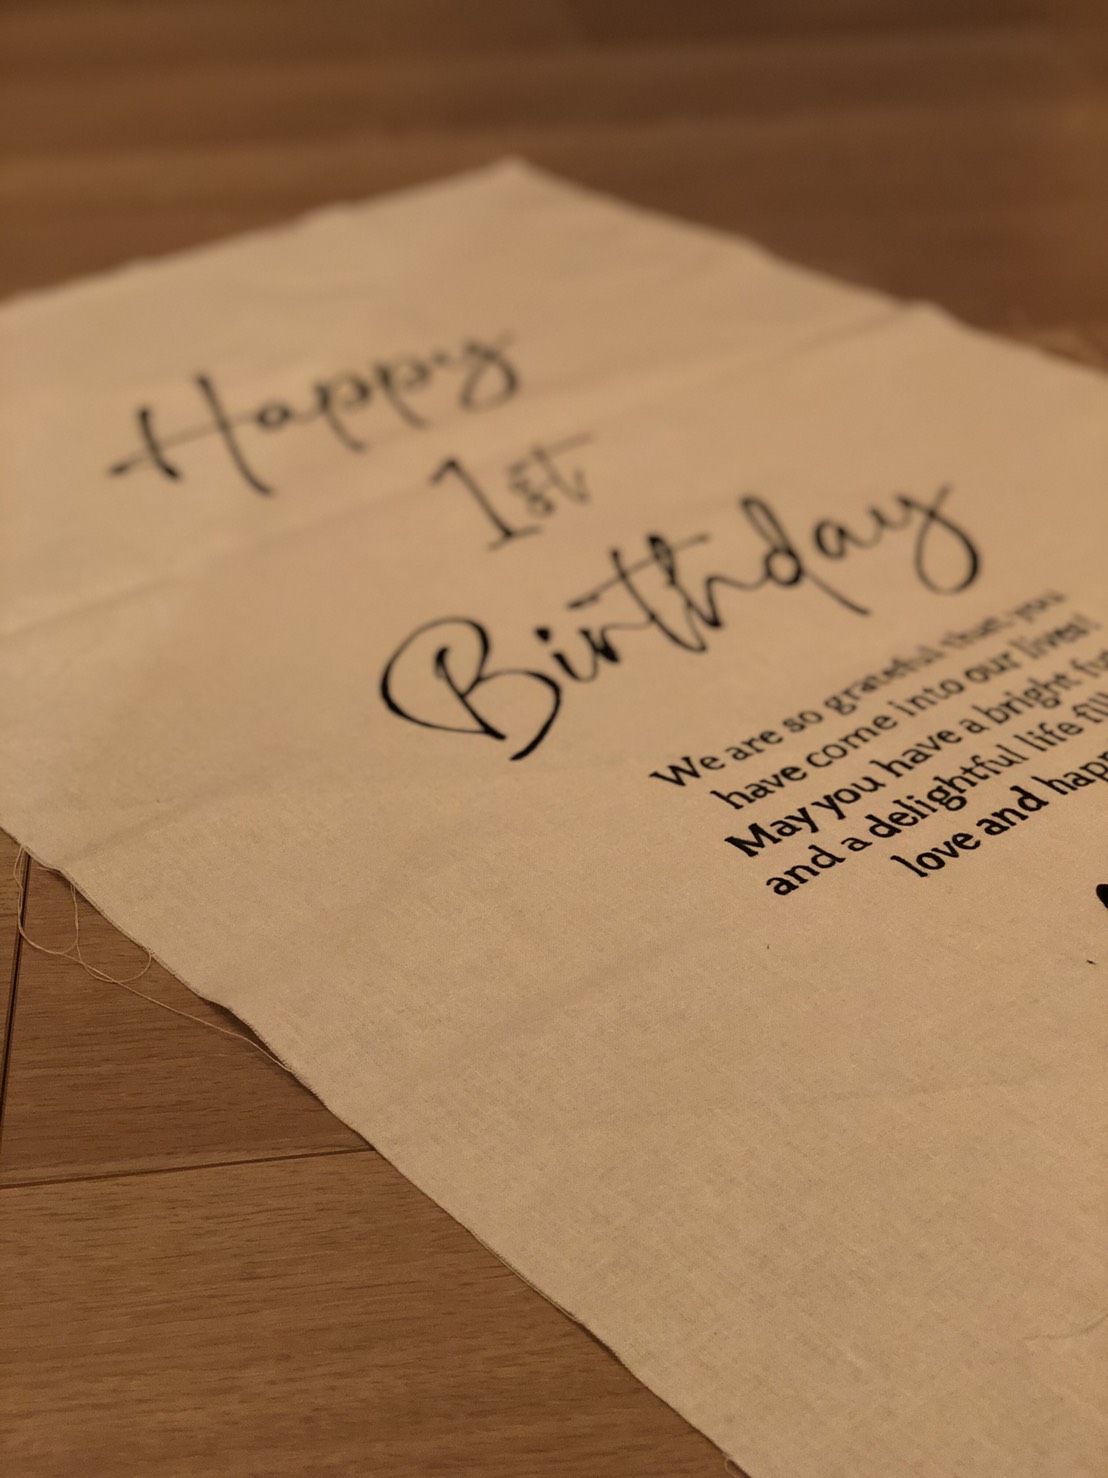 Happy
1st
Birthday
We are so grateful that you
have come into our lives!
May you have a bright
and a delightful life
love and